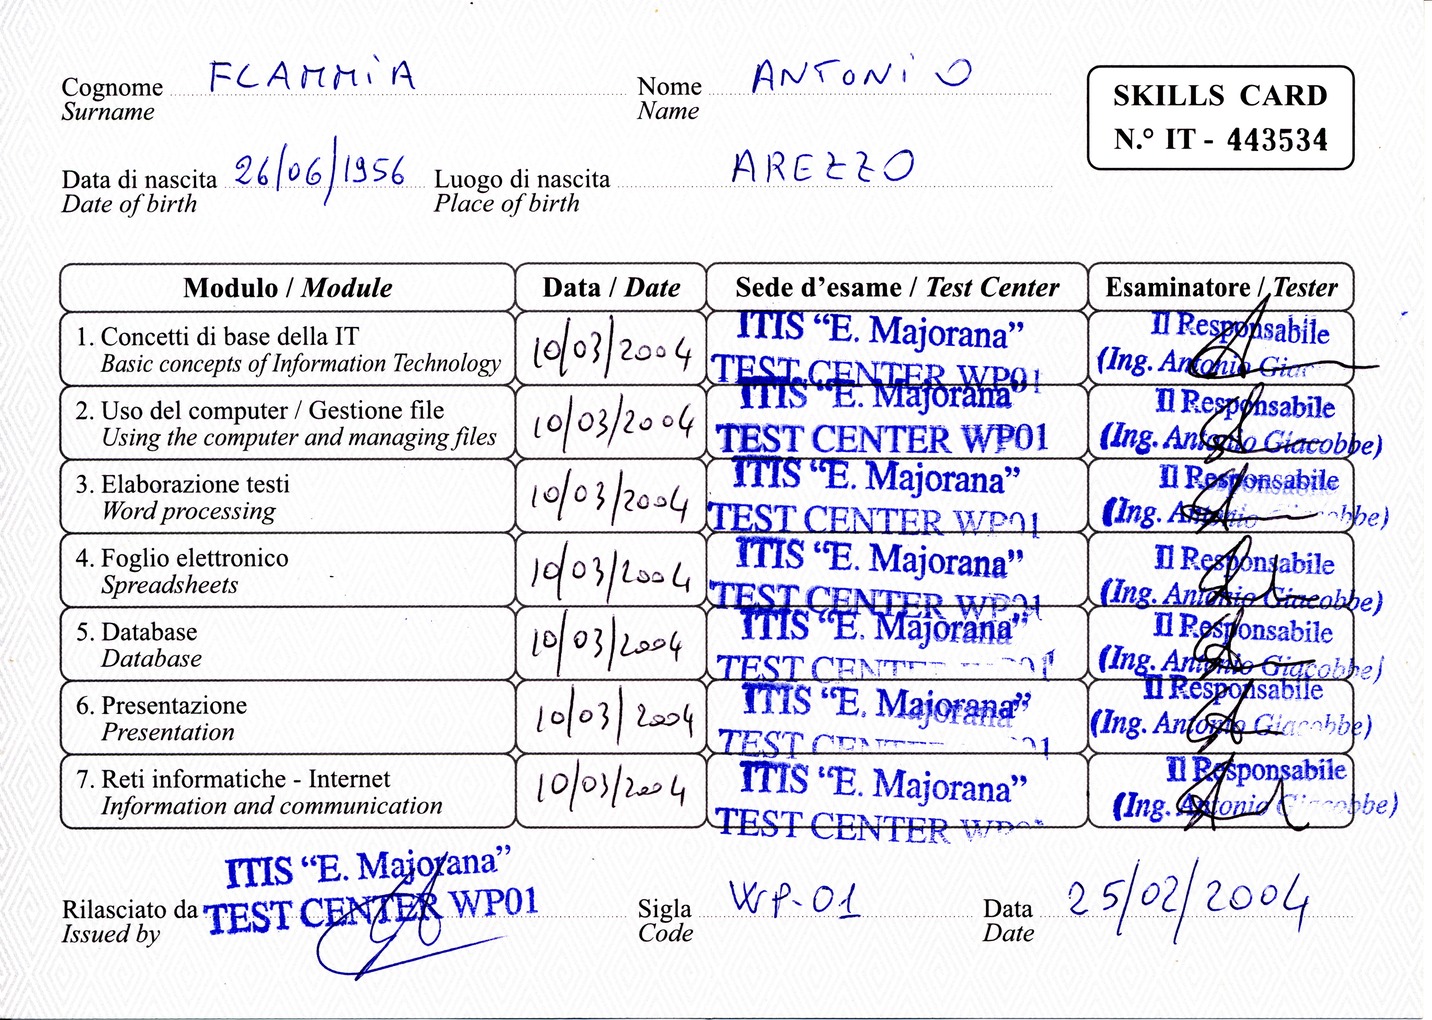 Cognome FLAMMIA Nome ANTONIO
Surname Name
SKILLS CARD
N.° IT - 443534
Data di nascita 26/06/1956 Luogo di nascita AREZZO
Date of birth Place of birth
Modulo / Module Data / Date Sede d'esame / Test Center Esaminatore / Tester
1. Concetti di base della IT
Basic concepts of Information Technology
10/03/2004
ITIS "E. Majorana"
TEST CENTER WP01
Il Responsabile
(Ing. Antonio
2. Uso del computer / Gestione file
Using the computer and managing files
10/03/2004
ITIS "E. Majorana"
TEST CENTER WP01
Il Responsabile
(Ing. Antonio Giacobbe)
3. Elaborazione testi
Word processing
10/03/2004
ITIS "E. Majorana"
TEST CENTER WP01
Il Responsabile
(Ing. Antonio Giacobbe)
4. Foglio elettronico
Spreadsheets
10/03/2004
ITIS "E. Majorana"
TEST CENTER WP01
Il Responsabile
(Ing. Antonio Giacobbe)
5. Database
Database
10/03/2004
ITIS "E. Majorana"
TEST CENTER WP01
Il Responsabile
(Ing. Antonio Giacobbe)
6. Presentazione
Presentation
10/03/2004
ITIS "E. Majorana"
TEST
Il Responsabile
(Ing. Antonio Giacobbe)
7. Reti informatiche - Internet
Information and communication
10/03/2004
ITIS "E. Majorana"
TEST CENTER
Il Responsabile
(Ing. Antonio Giacobbe)
ITIS "E. Majorana"
Rilasciato da TEST CENTER WP01 Sigla WP-01 Data 25/02/2004
Issued by Code Date